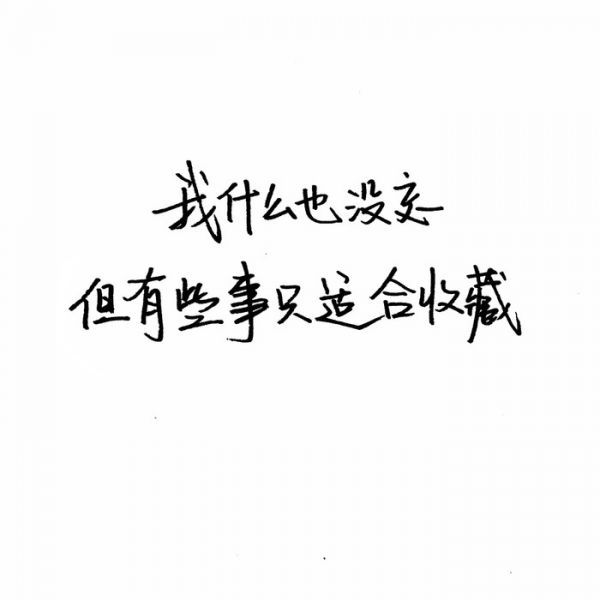 我什么也没忘
但有些事只适合收藏